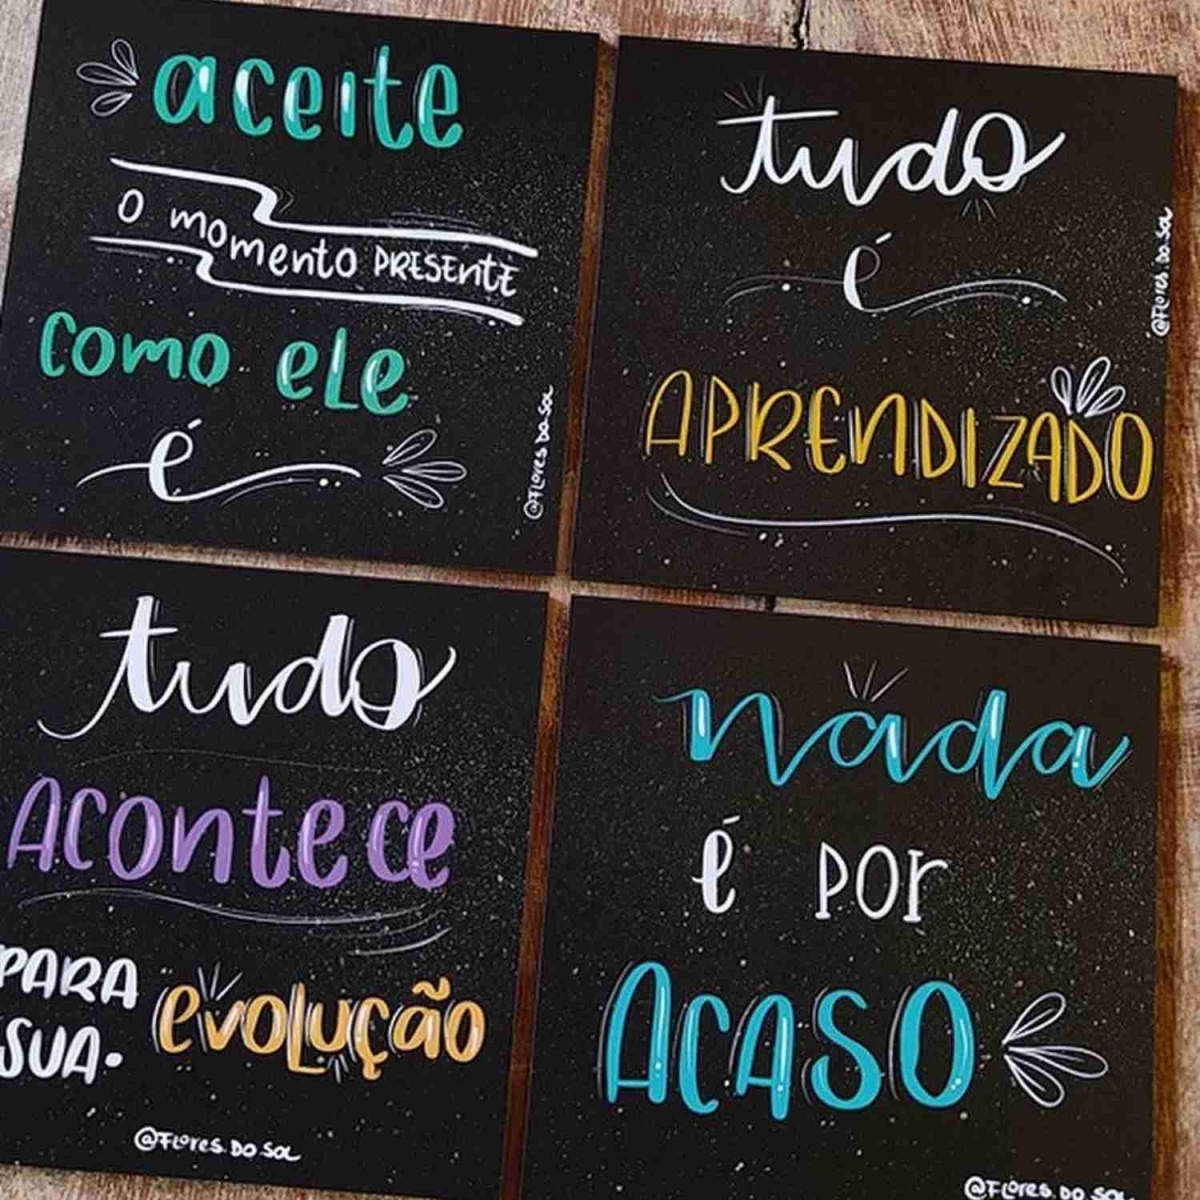 aceite
o momento PRESENTE
como ele
é
@FLORES.DO.SOL
tudo
é
APRENDIZADO
@FLORES.DO.SOL
tudo
Acontece
PARA
SUA.
evolução
@FLORES.DO.SOL
nada
é por
ACASO
@FLORES.DO.SOL